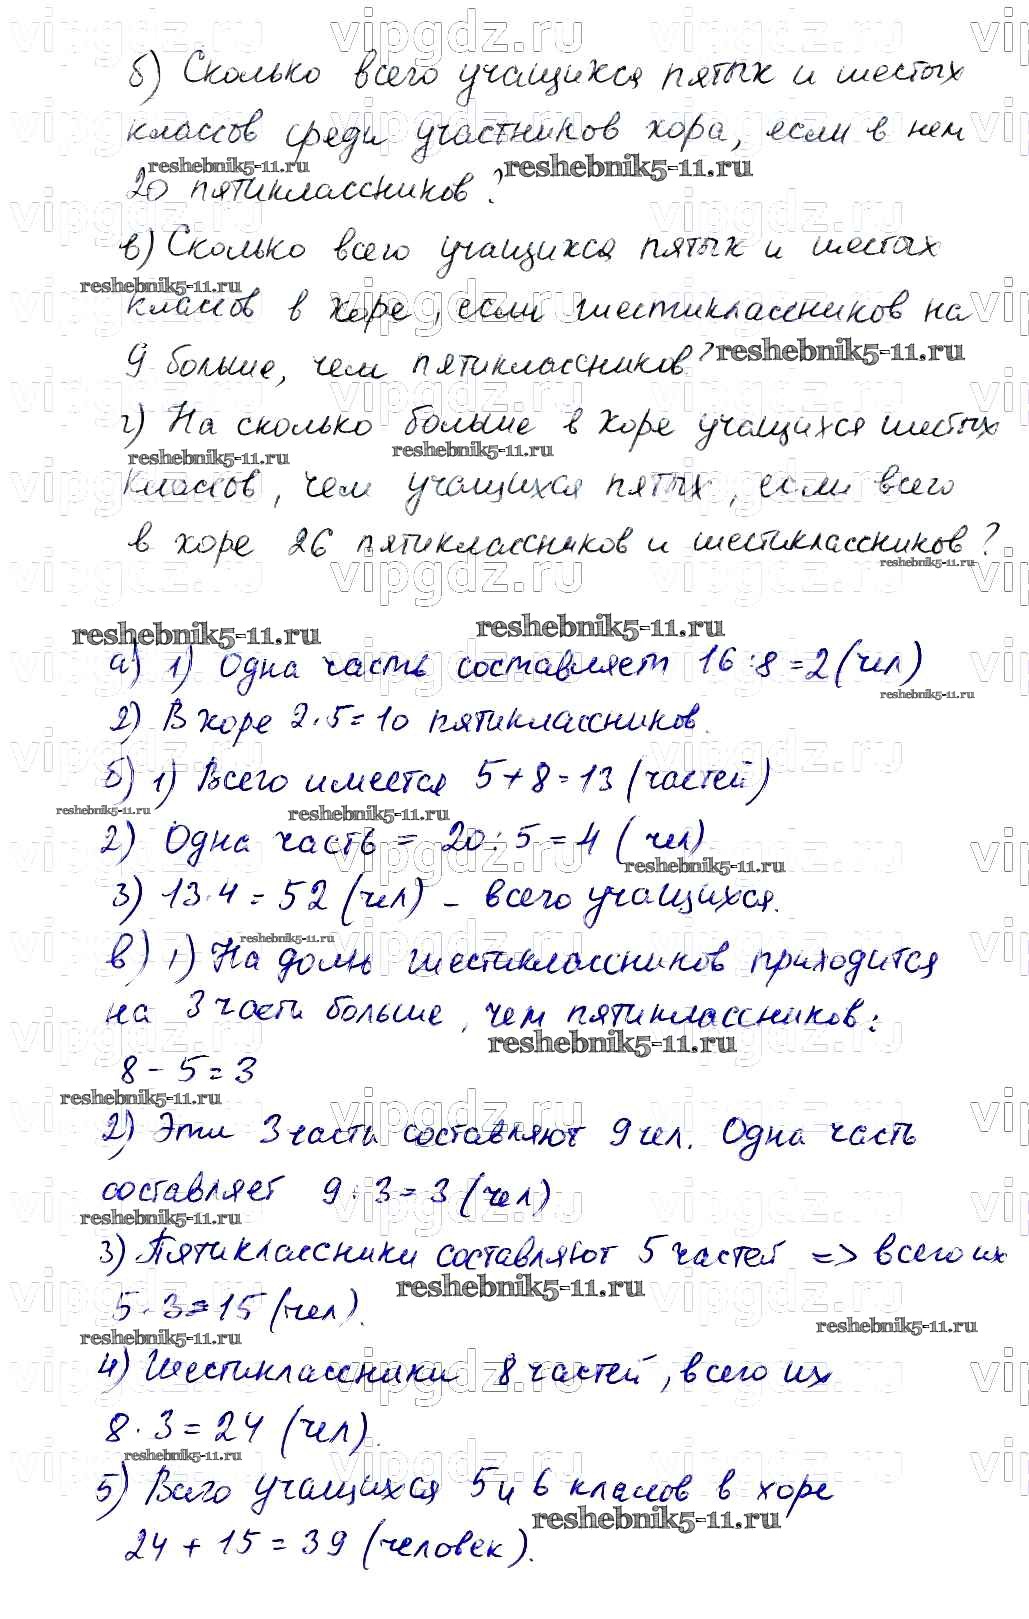 б) Сколько всего учащихся пятых и шестых
классов среди участников хора, если в нем
20 пятиклассников?
в) Сколько всего учащихся пятых и шестых
классов в хоре, если шестиклассников на
9 больше, чем пятиклассников?
г) На сколько больше в хоре учащихся шестых
классов, чем учащихся пятых, если всего
в хоре 26 пятиклассников и шестиклассников?
а) 1) Одна часть составляет 16:8=2 (чел)
2) В хоре 2·5=10 пятиклассников.
б) 1) Всего имеется 5+8=13 (частей)
2) Одна часть = 20:5=4 (чел)
3) 13·4=52 (чел) – всего учащихся.
в) 1) На долю шестиклассников приходится
на 3 части больше, чем пятиклассников:
8-5=3
2) Эти 3 части составляют 9 чел. Одна часть
составляет 9:3=3 (чел)
3) Пятиклассники составляют 5 частей => всего их
5·3=15 (чел).
4) Шестиклассники 8 частей, всего их
8·3=24 (чел).
5) Всего учащихся 5 и 6 классов в хоре
24+15=39 (человек).
vipgdz.ru
reshebnik5-11.ru